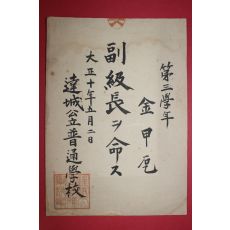 第三學年
金甲
副級長ヲ命ス
大正十年五月二日
達城公立普通學校